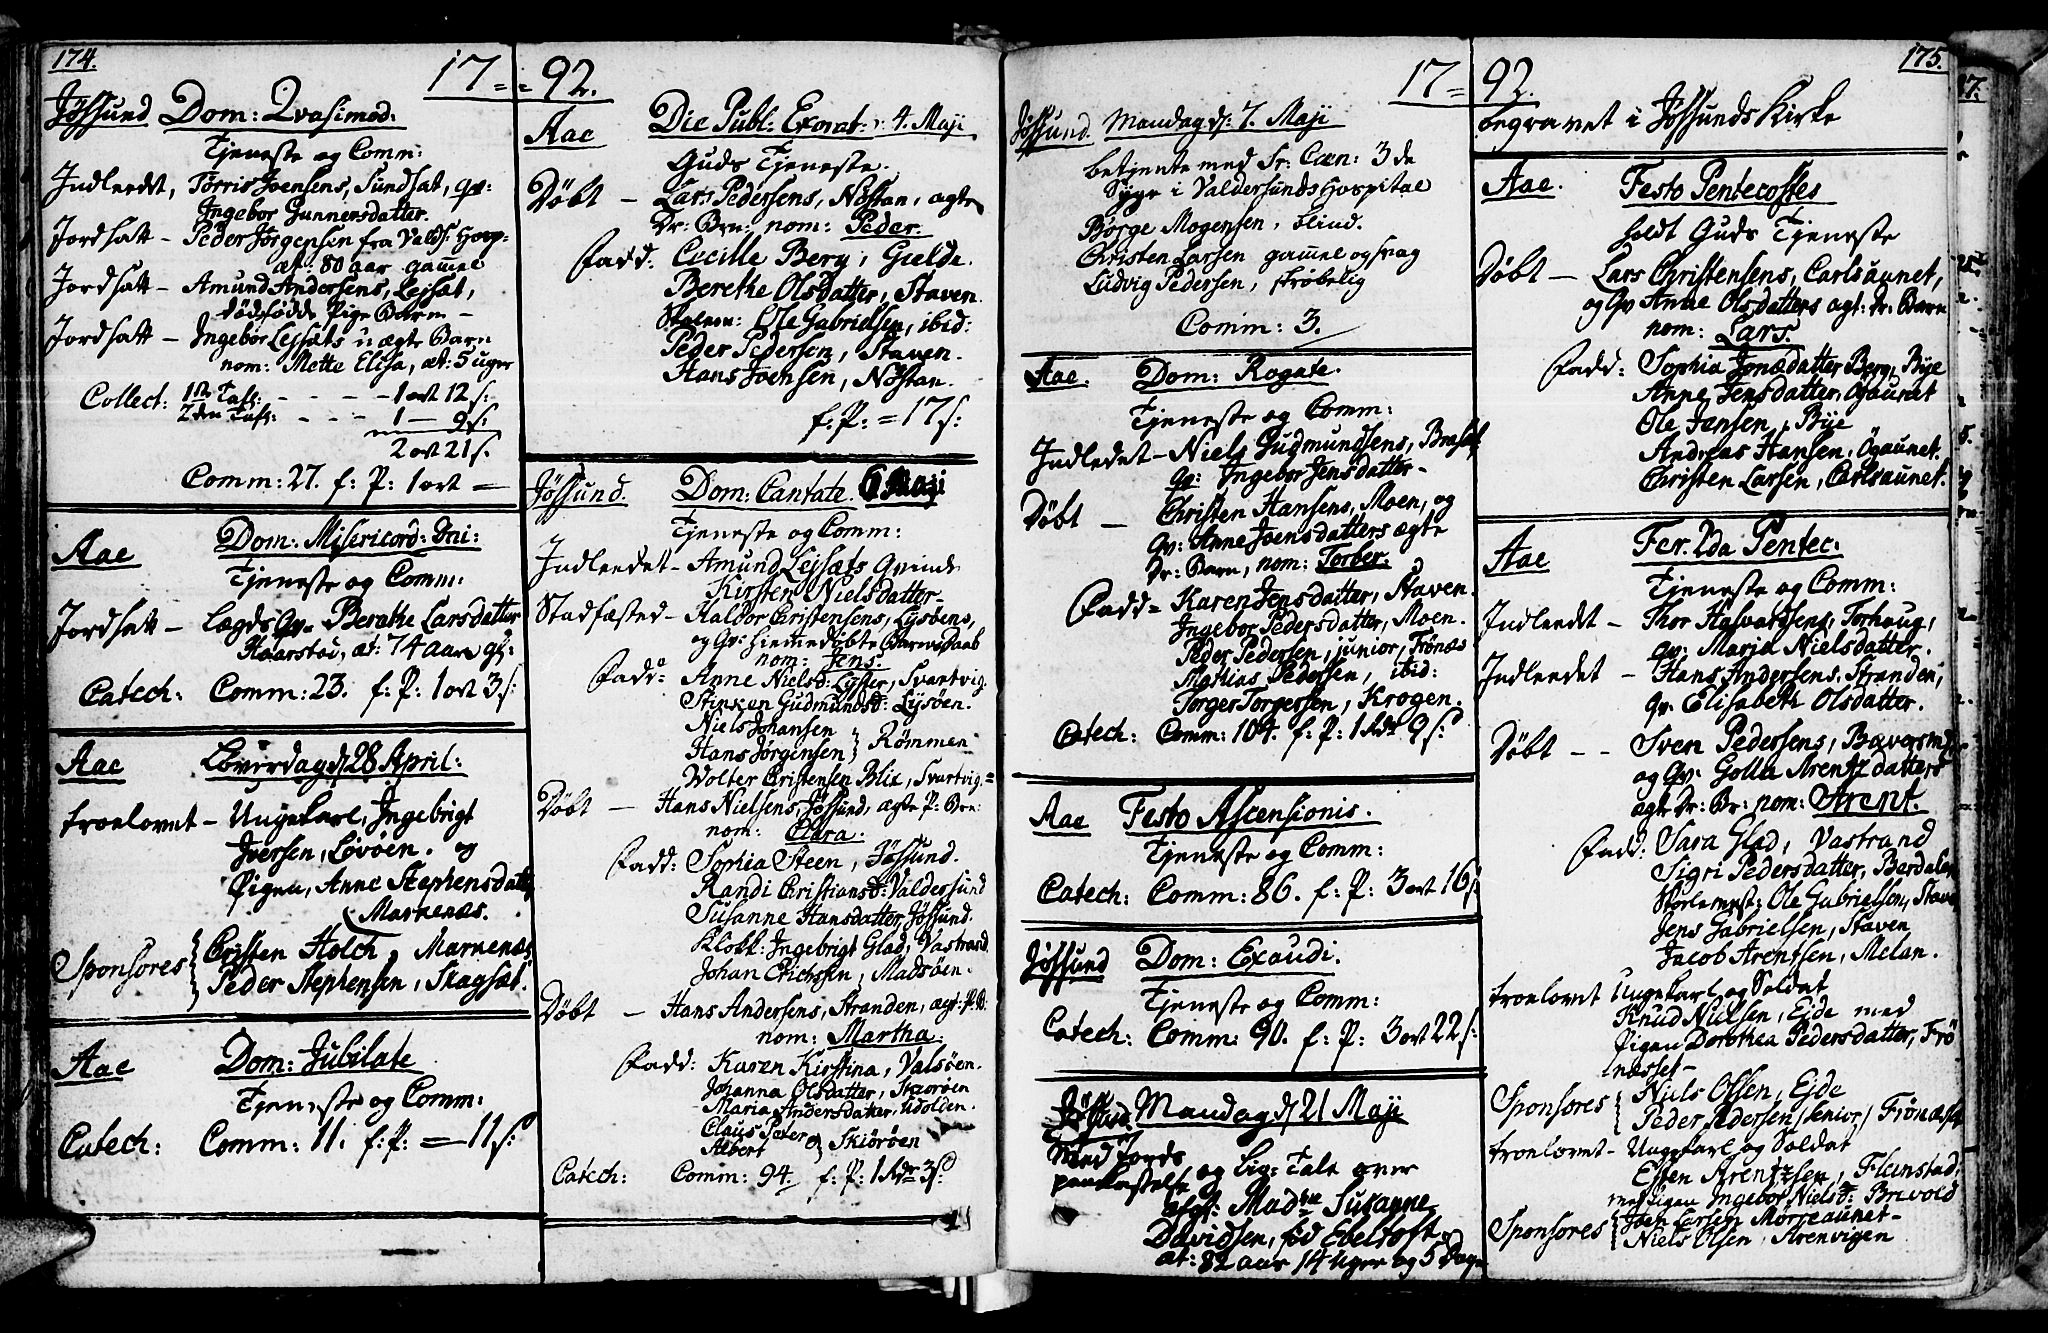 174.
17 = = 92.
Jössund Dom: Qvasimod:
Tjeneste og Comm:
Indleedet, Torris Joensens, Sundsæt, qv:
Ingebor Gunnersdatter.
Jordsatt – Peder Jörgensen fra Vald: Hosp:
æt: 80 aar gamel
Jordsatt – Amund Andersens, Lejsæt,
dödfödde Pige Barn –
Jordsatt – Ingebor Lejsæts uægte Barn
nom: Mette Elisa, æt: 5 uger
Collect: 1ste Tafl: - - - - 1 ort 12 s:
2den Tafl: - - - 1 — 9 s:
2 ort 21 s.
Comm: 27. f: P: 1 ort =
Aae Dom: Misericord: Dni:
Tjeneste og Comm:
Jordsatt – Lægds Qv. Berethe Larsdatter
Haarstoi, æt: 74 aar gl:
Catech: Comm: 23. f: P: 1 ort 3 s:
Aae Löverdag d 28 April:
troelovet – Ungekarl, Ingebrigt
Iversen, Lövöen. og
Pigen, Anne Stephensdatter
Marnenæs.
Sponsores Cristen Holck, Marnenæs
Peder Stephensen, Skagsæt.
Aae Dom: Jubilate
Tjeneste og Comm:
Catech: Comm: 11. f: P: = 11 s:
Aae Die Publ: Exorat: 4. Maji
Guds Tjeneste.
Döbt – Lars Pedersens, Nöstan, ægte
Dr: Brn: nom: Peder.
Fadd: Cecille Berg, Gielde.
Berethe Olsdatter, Staven.
Skolem: Ole Gabrielsen, ibid:
Peder Pedersen, Staven.
Hans Joensen, Nöstan.
f. P: = 17 s:
Jössund. Dom: Cantate. 6 Maji
Tjeneste og Comm:
Indleedet – Amund Lejsæts Qvinde
Kirsten Nielsdatter –
Stadfæsted – Haldor Christensens, Lysöens,
og Qv: hiemmedöbte Barns Daab
nom: Jens.
Fadd: Anne Nielsd: Lysser, Svartvig.
Stinken Gudmundsd: Lysöen.
Niels Johansen
Hans Jörgensen } Römmen
Wolter Christensen Blix, Svartvig. =
Döbt – Hans Nielsens, Jössund, ægte P: Brn:
nom: Clara.
Fadd: Sophia Steen, Jössund.
Randi Christiansd: Valdersund
Susanne Hansdatter, Jössund.
Klokk: Ingebrigt Glad, Vastrand
Johan Erichsen, Madsöen.
Döbt – Hans Andersens, Stranden, ægt: P. B:
nom: Martha.
Fadd: Karen Kirstina, Valsöen.
Johanna Olsdatter, Skiöröen
Maria Andersdatter, Udolden.
Claus Peter
Albert } Skiöröen
Catech: Comm: 94. f: P: 1 Rdr 3 s:
175.
17 = 92.
Jössund. Mandag d: 7. Maji
betjente med Sr: Cæn: 3 de
Syge i Valdersunds Hospital
Börge Mogensen, blind.
Christen Larsen gammel og svag
Ludvig Pedersen, skröbelig
Comm: 3.
Aae. Dom: Rogate.
Tjeneste og Comm:
Indledet – Niels Gudmundsens, Bræsæt
qv: Ingebor Jensdatter –
Döbt – Christen Hansens, Moen, og
Qv: Anne Joensdatters ægte
Dr: Barn, nom: Torber.
Fadd = Karen Jensdatter, Staven.
Ingebor Pedersdatter, Moen.
Peder Pedersen, junior, Frönæs
Mathias Pedersen, ibid:
Torges Torgersen, Krogen.
Catech: Comm: 104. f: P: 1 Rdr 9 s:
Aae Festo Ascensionis.
Tjeneste og Comm:
Catech: Comm: 86. f: P: 3 ort 16 s:
Jössund Dom: Exaudi.
Tjeneste og Comm:
Catech: Comm: 90. f: P: 3 ort 22 s:
Jössund Mandag d 21 Maji
med Jords
paakastelse og Lig: Tale over
Mad:me Susanne
Davidsen, föd Ebeltoft,
æt: 82 aar 14 uger og 5 Dage
begravet i Jössunds Kirke
Aae. Festo Pentecostes
holdt Guds Tjeneste
Döbt – Lars Christensens, Carlsaunet,
og Qv Anne Olsdatters ægt: Dr: Barn
nom: Lars.
Fadd: Sophia Jonædatter Berg, Bye
Anne Jensdatter, Ögaunet
Ole Jensen, Bye
Andreas Hansen, Ögaunet.
Christen Larsen, Carlsaunet.
Aae Fer. 2da Pentec:
Tjeneste og Comm:
Indleedet – Thor Halvardsens, Torhaug,
qv: Marit Nielsdatter.
Indleedet – Hans Andersens, Stranden,
qv. Elisabeth Olsdatter.
Döbt – - Sven Pedersens,
og Qv: Golla Arentz datters
ægte Dr: Br: nom: Arent.
Fadd: Sara Glad, Vastrand
Sigri Pedersdatter, Berdalen
Skolemest: Ole Gabrielsen, Staven
Jens Gabrielsen, Staven
Jacob Arentsen, Melan.
troelovet Ungekarl og Soldat
Knud Nielsen, Eide med
Pigen Dorothea Pedersdatter, Frö
næsset –
Sponsores { Niels Olsen, Eide
Peder Pedersen /senior/ Frönæsset
troelovet – Ungekarl og Soldat
Esten Arentzsen, Flenstad,
med Pigen Ingebor Nielsd: Brevold
Sponsores { Joen Larsen Mörreaunet –
Niels Olsen, Arenvigen